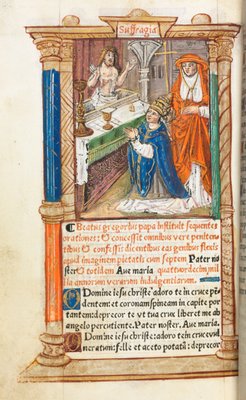 Suffragia
Beatus gregorius papa instituit sequentes
orationes: & concessit omnibus vere peniten
tibus & confessis dicentibus eas genibus flexis
corã imaginem pietatis cum septem Pater no
ster & totidem Aue maria. quattuordecim mil
lia annorum verarum indulgentiarum.
Domine iesu christe adoro te in cruce pẽ
dentem: et coronam spineam in capite por
tantem: deprecor te vt tua crux liberet me ab
angelo percutiente. Pater noster. Aue maria.
Domine iesu christe: adoro te in cruce vul
neratum: felle et aceto potatũ: deprecor